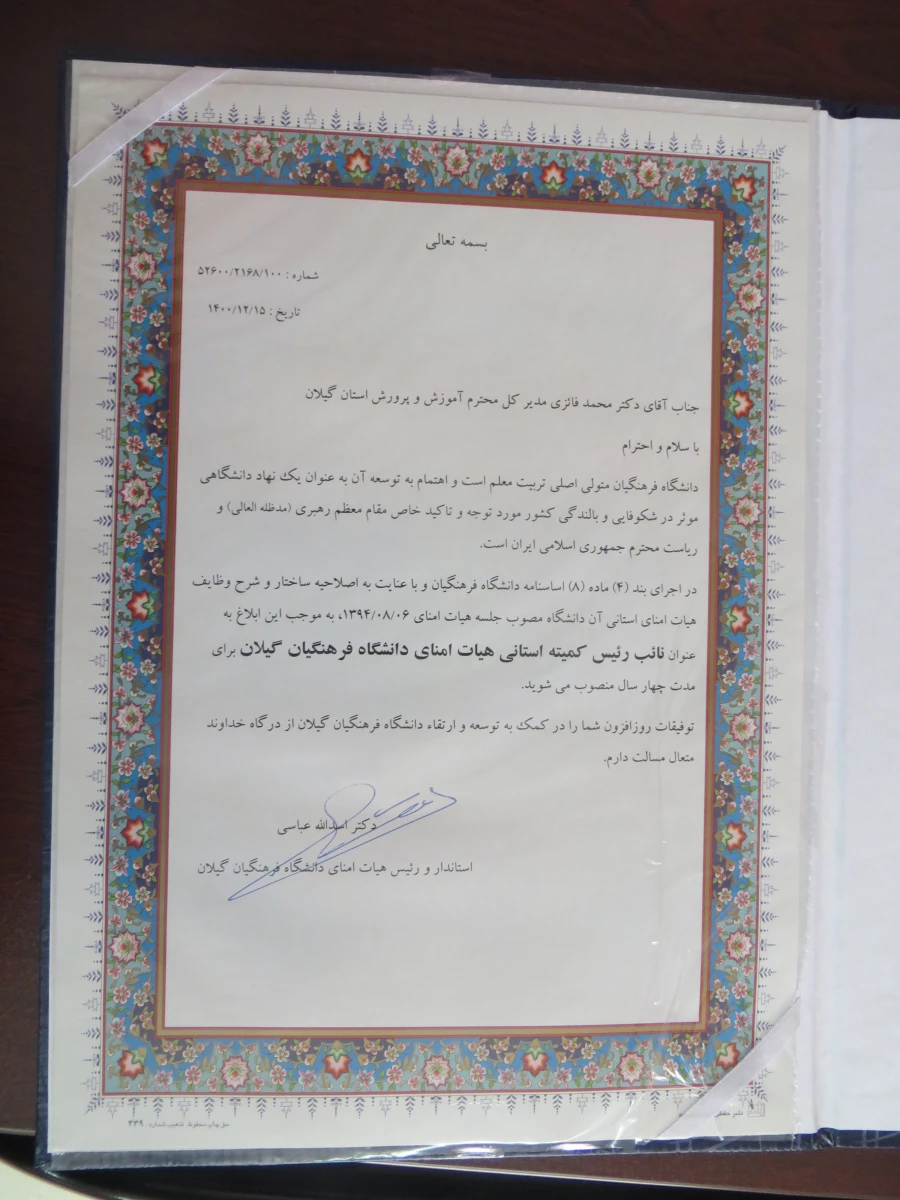 بسمه تعالی
شماره : ۵۲۶۰۰/۲۱۶۸/۱۰۰
تاریخ : ۱۴۰۰/۱۲/۱۵
جناب آقای دکتر محمد فائزی مدیر کل محترم آموزش و پرورش استان گیلان
با سلام و احترام
دانشگاه فرهنگیان متولی اصلی تربیت معلم است و اهتمام به توسعه آن به عنوان یک نهاد دانشگاهی
موثر در شکوفایی و بالندگی کشور مورد توجه و تاکید خاص مقام معظم رهبری (مدظله العالی) و
ریاست محترم جمهوری اسلامی ایران است.
در اجرای بند (۴) ماده (۸) اساسنامه دانشگاه فرهنگیان و با عنایت به اصلاحیه ساختار و شرح وظایف
هیات امنای استانی آن دانشگاه مصوب جلسه هیات امنای ۱۳۹۴/۰۸/۰۶، به موجب این ابلاغ به
عنوان نائب رئیس کمیته استانی هیات امنای دانشگاه فرهنگیان گیلان برای
مدت چهار سال منصوب می شوید.
توفیقات روزافزون شما را در کمک به توسعه و ارتقاء دانشگاه فرهنگیان گیلان از درگاه خداوند
متعال مسالت دارم.
دکتر اسدالله عباسی
استاندار و رئیس هیات امنای دانشگاه فرهنگیان گیلان
حق چاپ محفوظ. تذهیب شماره: ۲۳۹